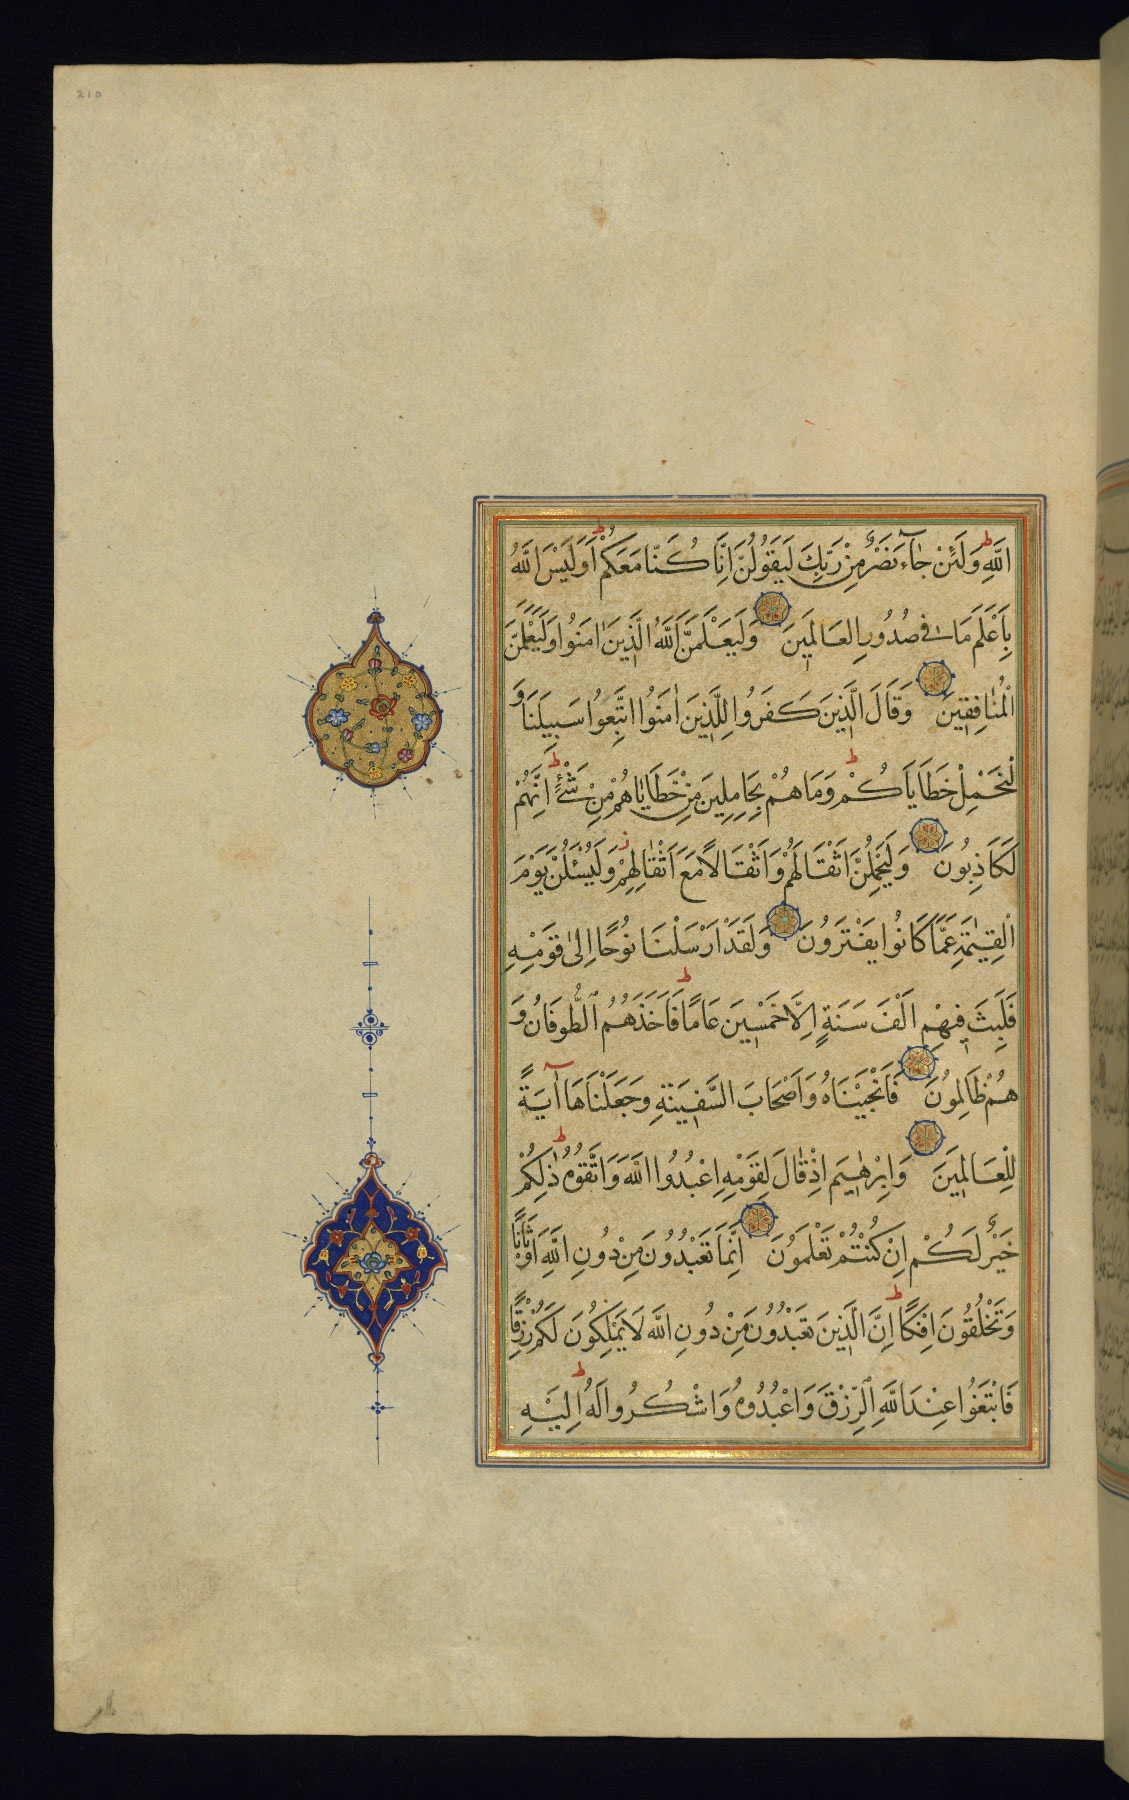 210
اللَّهِ وَلَئِنْ جَاءَ نَصْرٌ مِنْ رَبِّكَ لَيَقُولُنَّ اِنَّا كُنَّا مَعَكُمْ اَوَلَيْسَ اللَّهُ
بِاَعْلَمَ مَا فِي صُدُورِ الْعَالَمِينَ وَلَيَعْلَمَنَّ اللَّهُ الَّذِينَ اٰمَنُوا وَلَيَعْلَمَنَّ
الْمُنَافِقِينَ وَقَالَ الَّذِينَ كَفَرُوا لِلَّذِينَ اٰمَنُوا اتَّبِعُوا سَبِيلَنَا وَ
لْنَحْمِلْ خَطَايَاكُمْ وَمَا هُمْ بِحَامِلِينَ مِنْ خَطَايَاهُمْ مِنْ شَيْءٍ اِنَّهُمْ
لَكَاذِبُونَ وَلَيَحْمِلُنَّ اَثْقَالَهُمْ وَاَثْقَالًا مَعَ اَثْقَالِهِمْ وَلَيُسْئَلُنَّ يَوْمَ
الْقِيٰمَةِ عَمَّا كَانُوا يَفْتَرُونَ وَلَقَدْ اَرْسَلْنَا نُوحًا اِلٰى قَوْمِهِ
فَلَبِثَ فِيهِمْ اَلْفَ سَنَةٍ اِلَّا خَمْسِينَ عَامًا فَاَخَذَهُمُ الطُّوفَانُ وَ
هُمْ ظَالِمُونَ فَاَنْجَيْنَاهُ وَاَصْحَابَ السَّفِينَةِ وَجَعَلْنَاهَا اٰيَةً
لِلْعَالَمِينَ وَاِبْرٰهِيمَ اِذْ قَالَ لِقَوْمِهِ اعْبُدُوا اللَّهَ وَاتَّقُوهُ ذٰلِكُمْ
خَيْرٌ لَكُمْ اِنْ كُنْتُمْ تَعْلَمُونَ اِنَّمَا تَعْبُدُونَ مِنْ دُونِ اللَّهِ اَوْثَانًا
وَتَخْلُقُونَ اِفْكًا اِنَّ الَّذِينَ تَعْبُدُونَ مِنْ دُونِ اللَّهِ لَا يَمْلِكُونَ لَكُمْ رِزْقًا
فَابْتَغُوا عِنْدَ اللَّهِ الرِّزْقَ وَاعْبُدُوهُ وَاشْكُرُوا لَهُ اِلَيْهِ